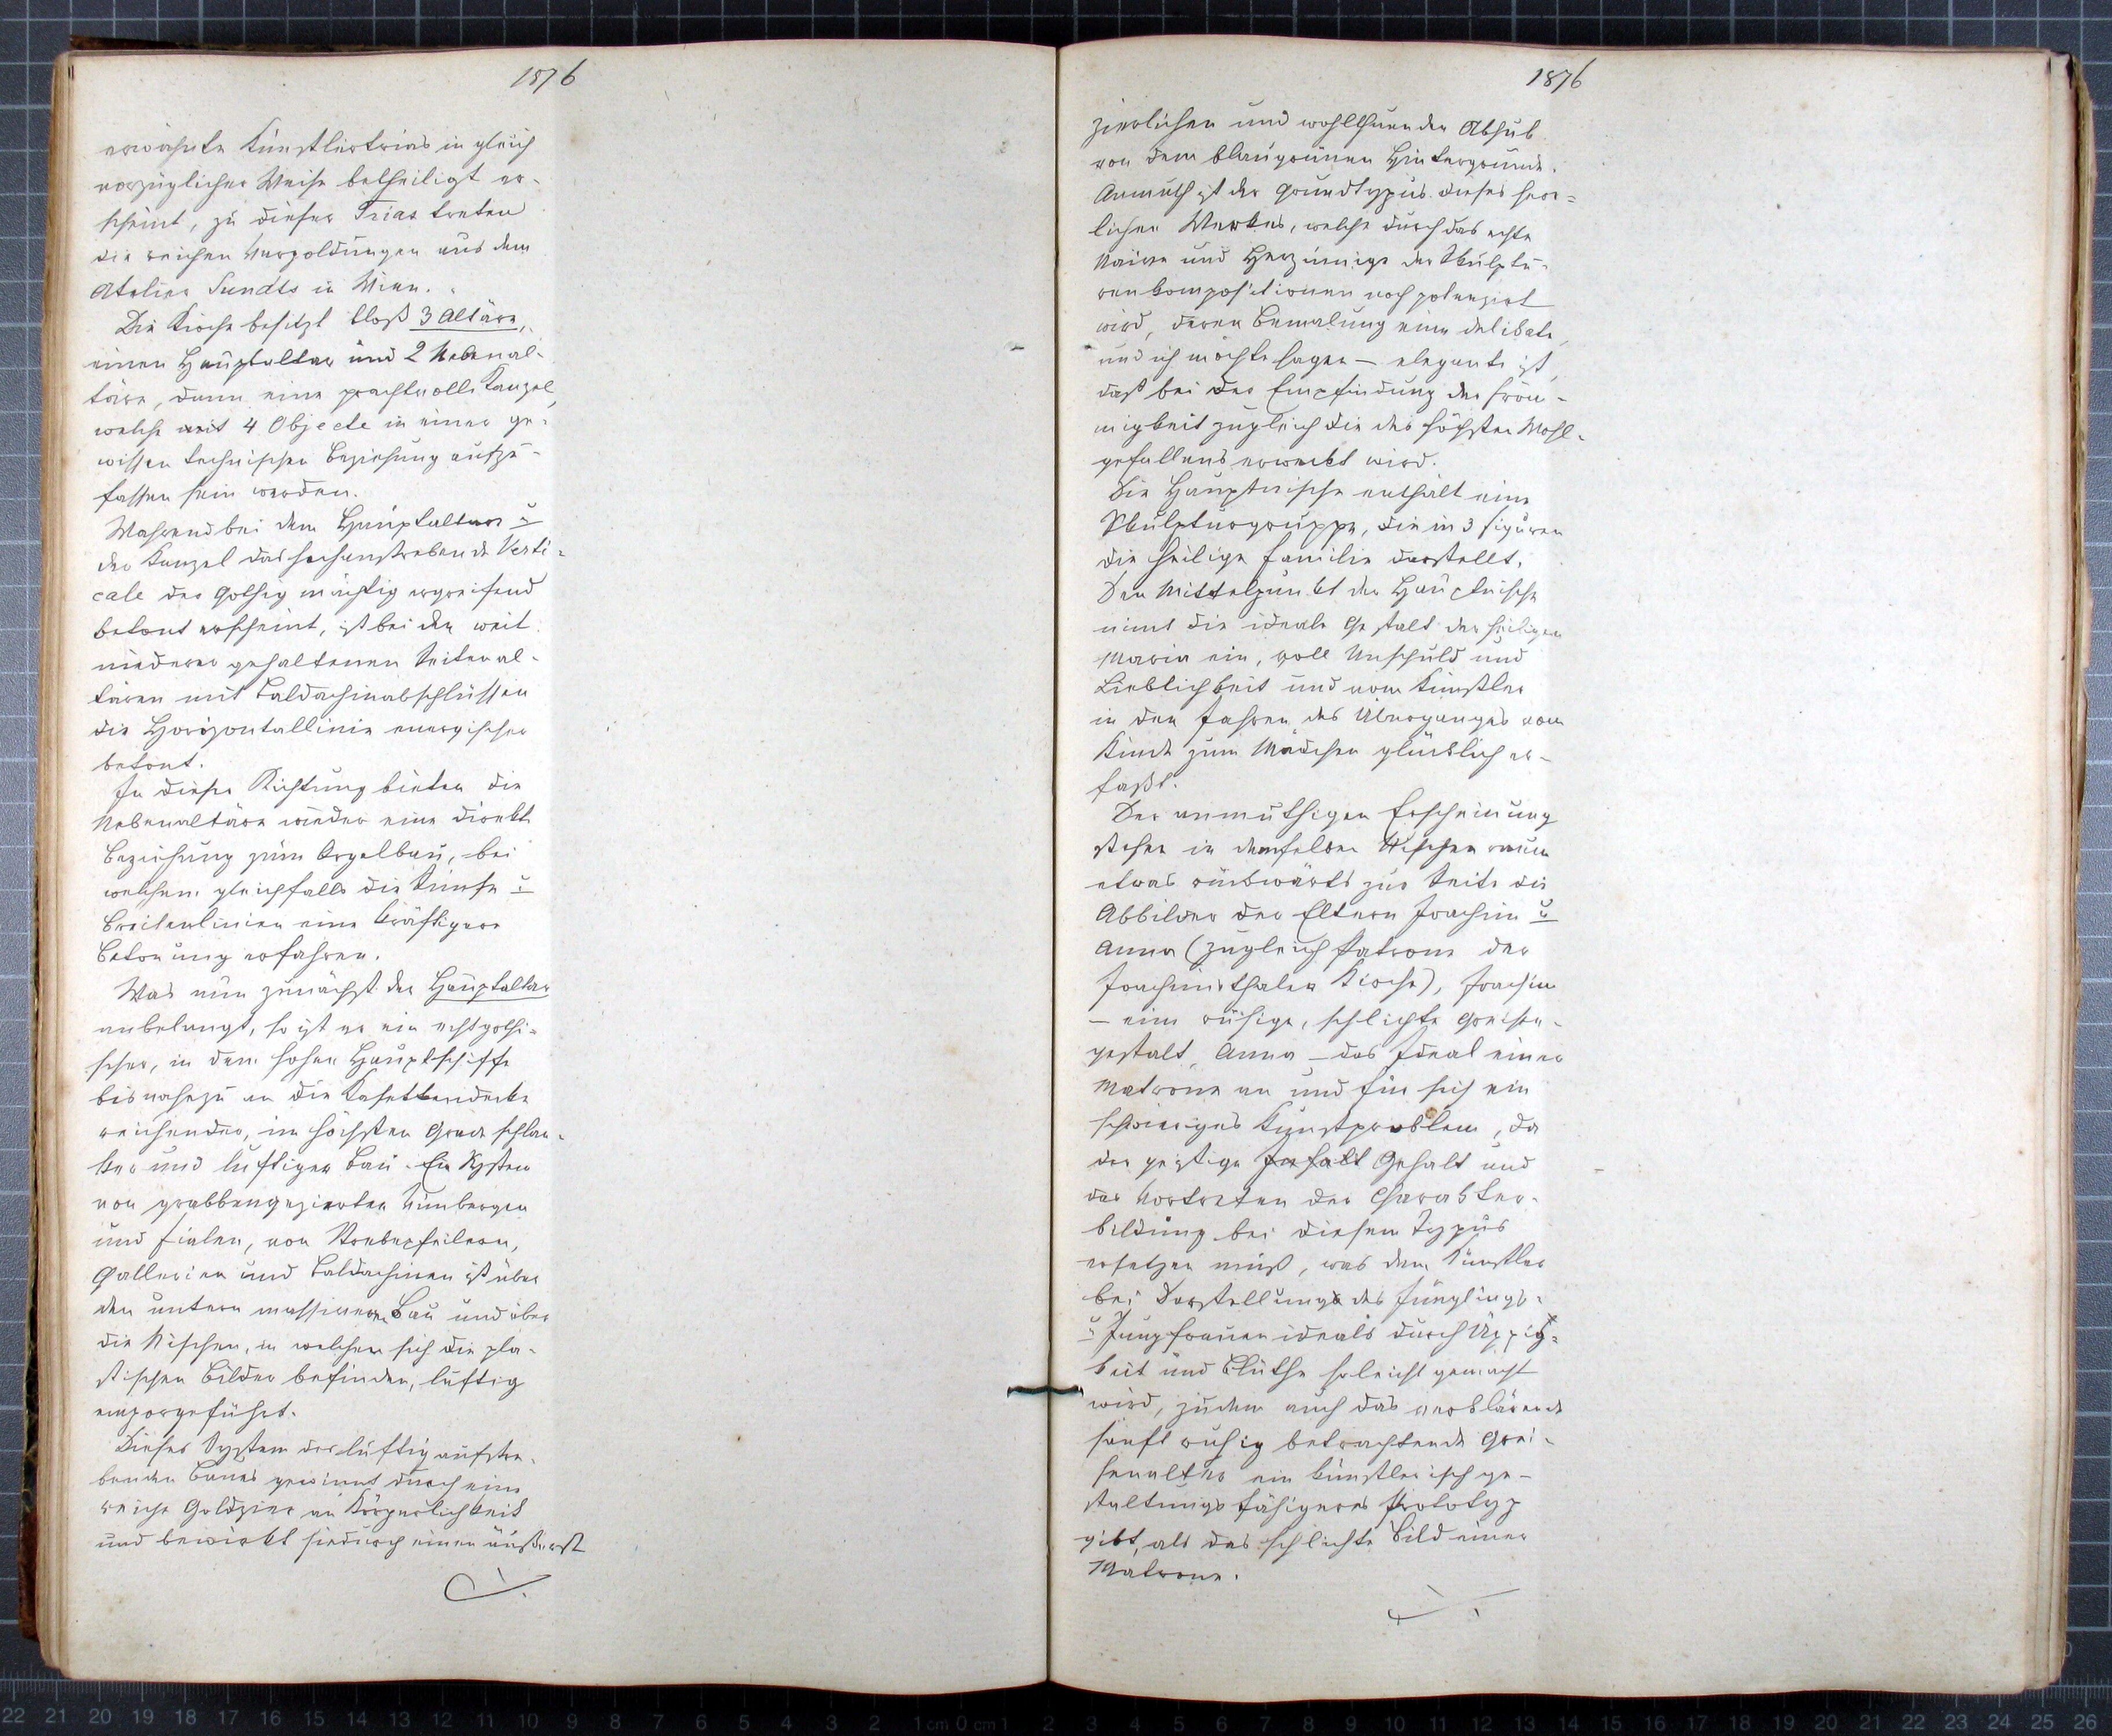 1876
erwähnte Künstlertrias in gleich
vorzüglicher Weise betheiligt er-
scheint, zu dieser Trias treten
die reichen Vergoldungen aus dem
Atelier Sundts in Wien.
Die Kirche besitzt bloß 3 Altäre,
einen Hauptaltar und 2 Nebenal-
täre, dann eine prachtvolle Kanzel,
welche mit 4 Objecte in einer ge-
wissen technischen Beziehung aufzu-
fassen sein werden.
Während bei dem Hauptaltare u
der Kanzel das hochanstrebende Verti-
cale der Gothig mächtig ergreifend
betont erscheint, ist bei den weit
niederer gehaltenen Seitenal-
tären mit Baldachinabschlüssen
die Horizontallinie energischer
betont.
In dieser Richtung bieten die
Nebenaltäre wieder eine direkte
Beziehung zum Orgelbau, bei
welchem gleichfalls die Simse u
Breitenlinien eine kräftigere
Betonung erfahren.
Was nun zunächst den Hauptaltar
anbelangt, so ist er ein echt gothi-
scher, in dem hohen Hauptschiffe
bis nahezu an die Kasettendecke
reichender, im höchsten Grade schlan-
ker und luftiger Bau. Ein System
von grabbengezierten Wimbergen
und Fialen, von Strebepfeilern,
Gallerien und Baldachinen ist über
den untern massiveren Bau und über
die Nischen, in welchen sich die pla-
stischen Bilder befinden, luftig
emporgeführt.
Dieses System des luftig aufstre-
benden Baues gewinnt durch eine
reiche Goldzier an Körperlichkeit
und bewirkt hiedurch einen äußerst
1876
zierlichen und wohlthuenden Abhub
von dem blaugrünen Hintergrunde.
Anmuth ist der Grundtypus dieses herr-
lichen Werkes, welche durch das echte
Naive und Herzinnige der Skulptu-
renkompositionen noch potenzirt
wird, deren Bemalung eine delikate,
und ich möchte sagen – elegante ist,
daß bei der Empfindung der Fröm-
migkeit zugleich die des höchsten Wohl-
gefallens erweckt wird.
Die Hauptnische enthält eine
Skulpturgruppe, die in 3 Figuren
die heilige Familie darstellt.
Den Mittelpunkt der Hauptnische
nimt die ideale Gestalt der heiligen
Maria ein, voll Unschuld und
Lieblichkeit und vom Künstler
in den Jahren des Überganges vom
Kinde zum Mädchen glücklich er-
faßt.
Der anmuthigen Erscheinung
stehen in demselben Nischenraum
etwas rückwärts zur Seite die
Abbilder der Eltern Joachim u
Anna (zugleich Patrone der
Joachimsthaler Kirche), Joachim
– eine ruhige, schlichte Greisen-
gestalt, Anna – das Ideal einer
Matrone an und für sich ein
schwieriges Kunstproblem, da
der geistige Inhalt Gehalt und
das Vortreten der Charakter-
bildung bei diesem Typus
ersetzen muß, was dem Künstler
bei Darstellung des Jünglings-
u Jungfrauenideals durch Üppig-
keit und Blüthe so leicht gemacht
wird, zudem auch das verklärende
sanft ruhig betrachtende Grei-
senalter ein künstlerisch ge-
staltungsfähigeres Prototyp
gibt, als das schlichte Bild einer
Matrone.